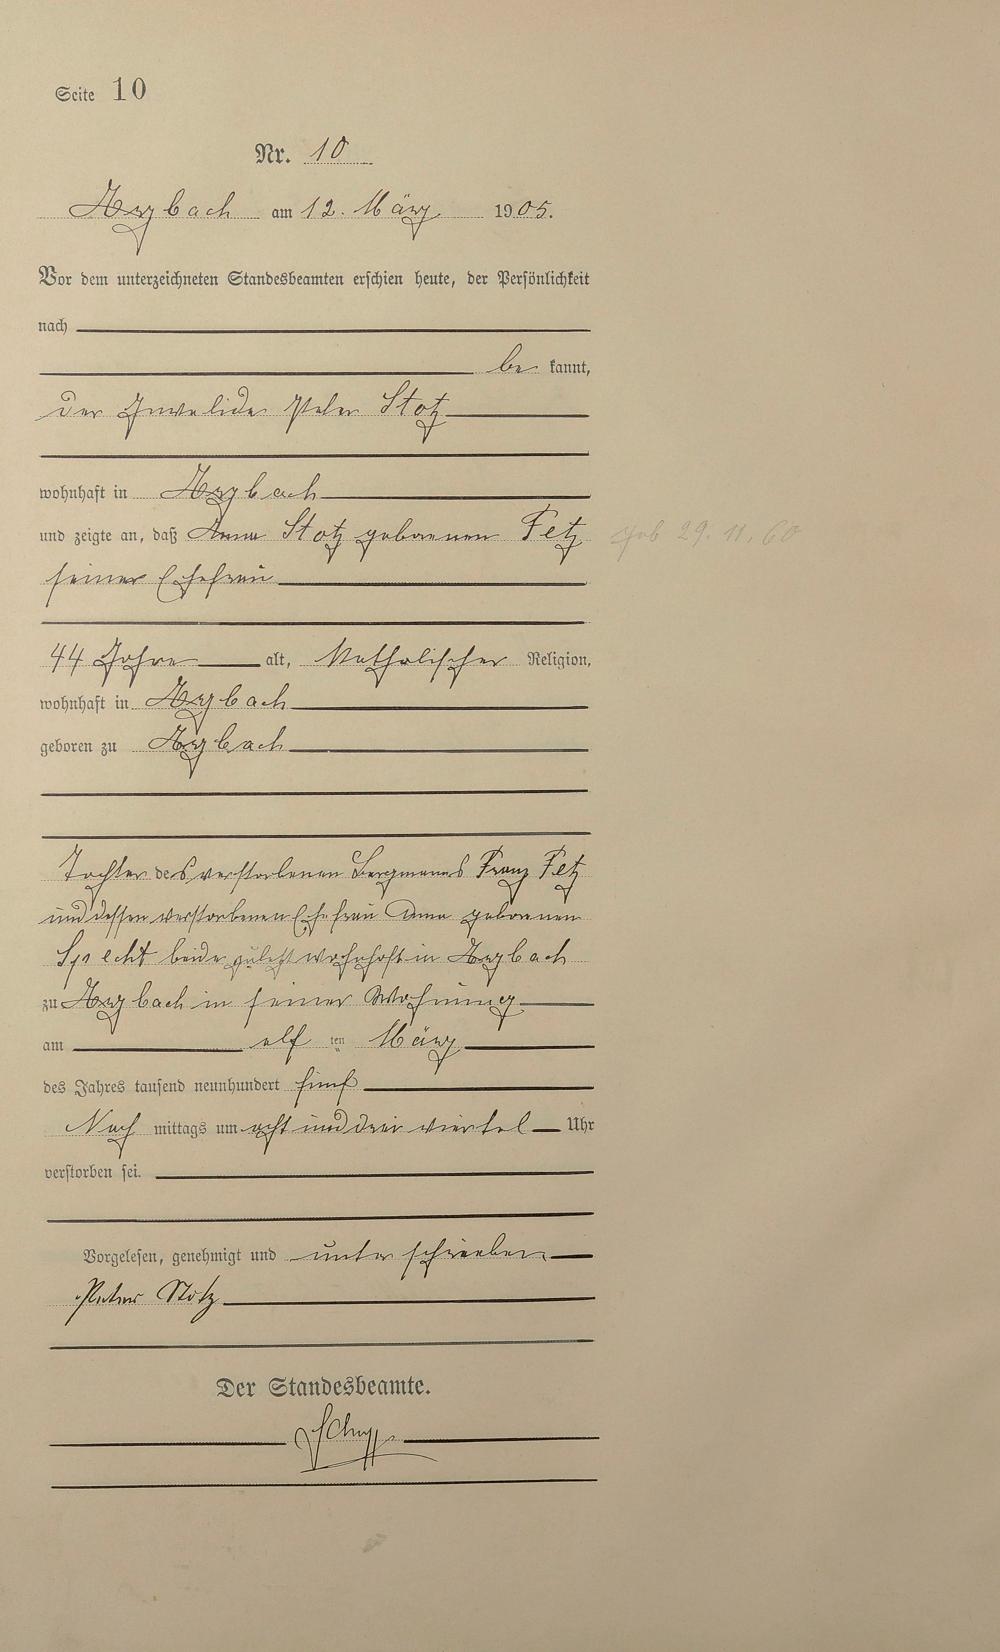 Seite 10
Nr. 10
Arzbach am 12. März 1905.
Vor dem unterzeichneten Standesbeamten erschien heute, der Persönlichkeit
nach
be kannt,
der Invalide Peter Stotz
wohnhaft in Arzbach
und zeigte an, daß Anna Stotz geborenen Fetz
geb 29. 11. 60
seiner Ehefrau
44 Jahre alt, Katholischer Religion,
wohnhaft in Arzbach
geboren zu Arzbach
Tochter des verstorbenen Bergmanns Franz Fetz
und dessen verstorbenen Ehefrau Anna geborenen
Specht beide zuletzt wohnhaft in Arzbach
zu Arzbach in seiner Wohnung
am elf ten März
des Jahres tausend neunhundert fünf
Nach mittags um acht und drei viertel Uhr
verstorben sei.
Vorgelesen, genehmigt und unterschrieben
Peter Stotz
Der Standesbeamte.